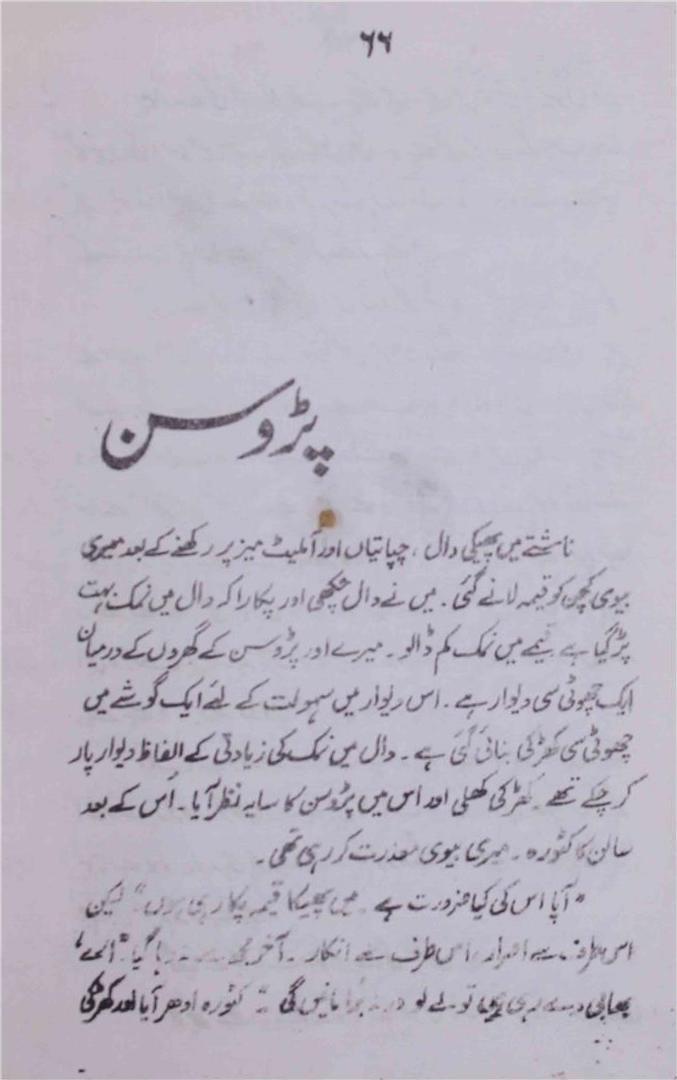 ۶۶
پڑوسن
ناشتے میں پھیکی دال، چپاتیاں اور آملیٹ میز پر رکھنے کے بعد میری
بیوی کچن کو قیمہ لانے گئی۔ میں نے دال چکھی اور پکارا کہ دال میں نمک بہت
پڑ گیا ہے قیمے میں نمک کم ڈالو۔ میرے اور پڑوسن کے گھروں کے درمیان
ایک چھوٹی سی دیوار ہے۔ اس دیوار میں سہولت کے لئے ایک گوشے میں
چھوٹی سی کھڑکی بنائی گئی ہے۔ دال میں نمک کی زیادتی کے الفاظ دیوار پار
کر چکے تھے۔ کھڑکی کھلی اور اس میں پڑوسن کا سایہ نظر آیا۔ اُس کے بعد
سالن کا کٹورہ۔ میری بیوی معذرت کر رہی تھی۔
"آپا اس کی کیا ضرورت ہے۔ میں پھیکا قیمہ پکا رہی ہوں" لیکن
اس طرف سے اصرار، اس طرف سے انکار۔ آخر مجھ سے نہ رہا گیا۔ "اے،
بھابی دے رہی ہیں تو لے لو ورنہ بُرا مانیں گی۔" کٹورہ ادھر آیا اور کھڑکی